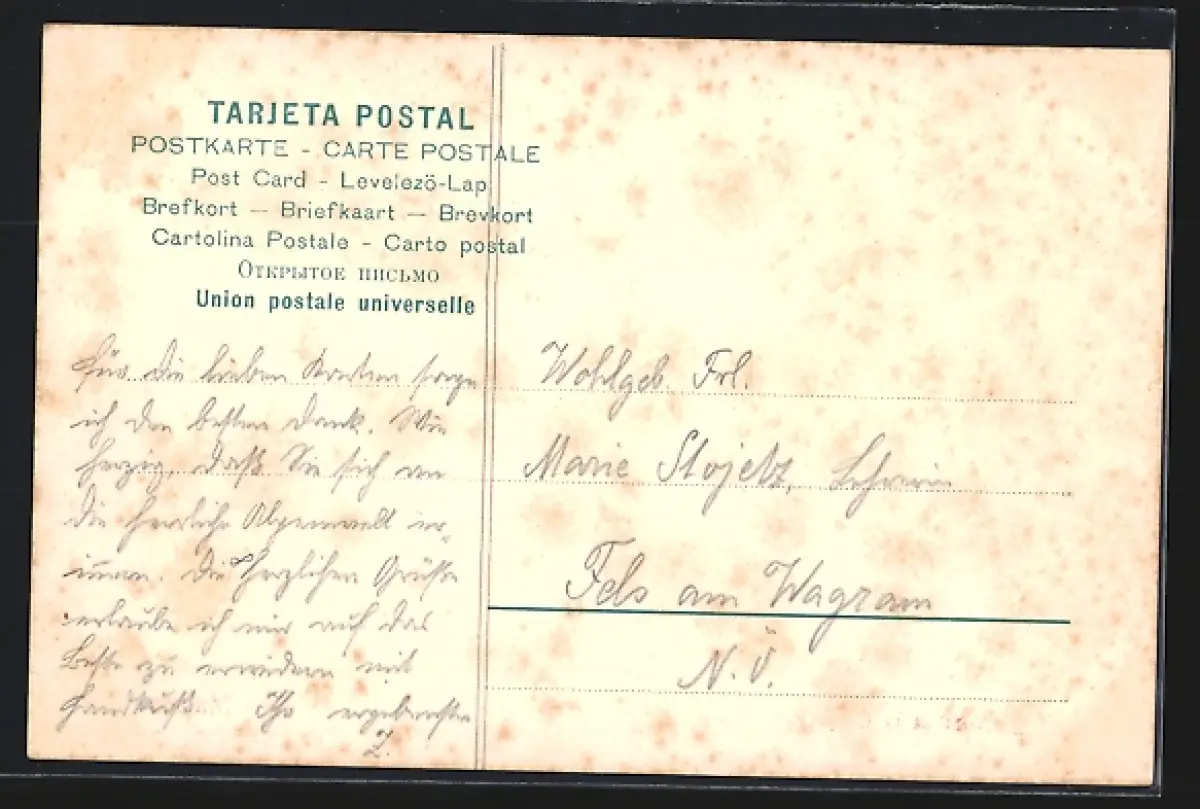 TARJETA POSTAL
POSTKARTE - CARTE POSTALE
Post Card - Levelező-Lap
Brefkort — Briefkaart — Brevkort
Cartolina Postale - Carto postal
Открытое письмо
Union postale universelle
Für die lieben Karten sage
ich den besten Dank. Wie
herzig, daß Sie sich an
die herrliche Alpenwelt er-
innern. Die herzlichen Grüße
erlaube ich mir auf das
Beste zu erwidern mit
Handkuß. Ihr ergebenster
Wohlgeb. Frl.
Marie Stojetz, Lehrerin
Fels am Wagram
N.Ö.